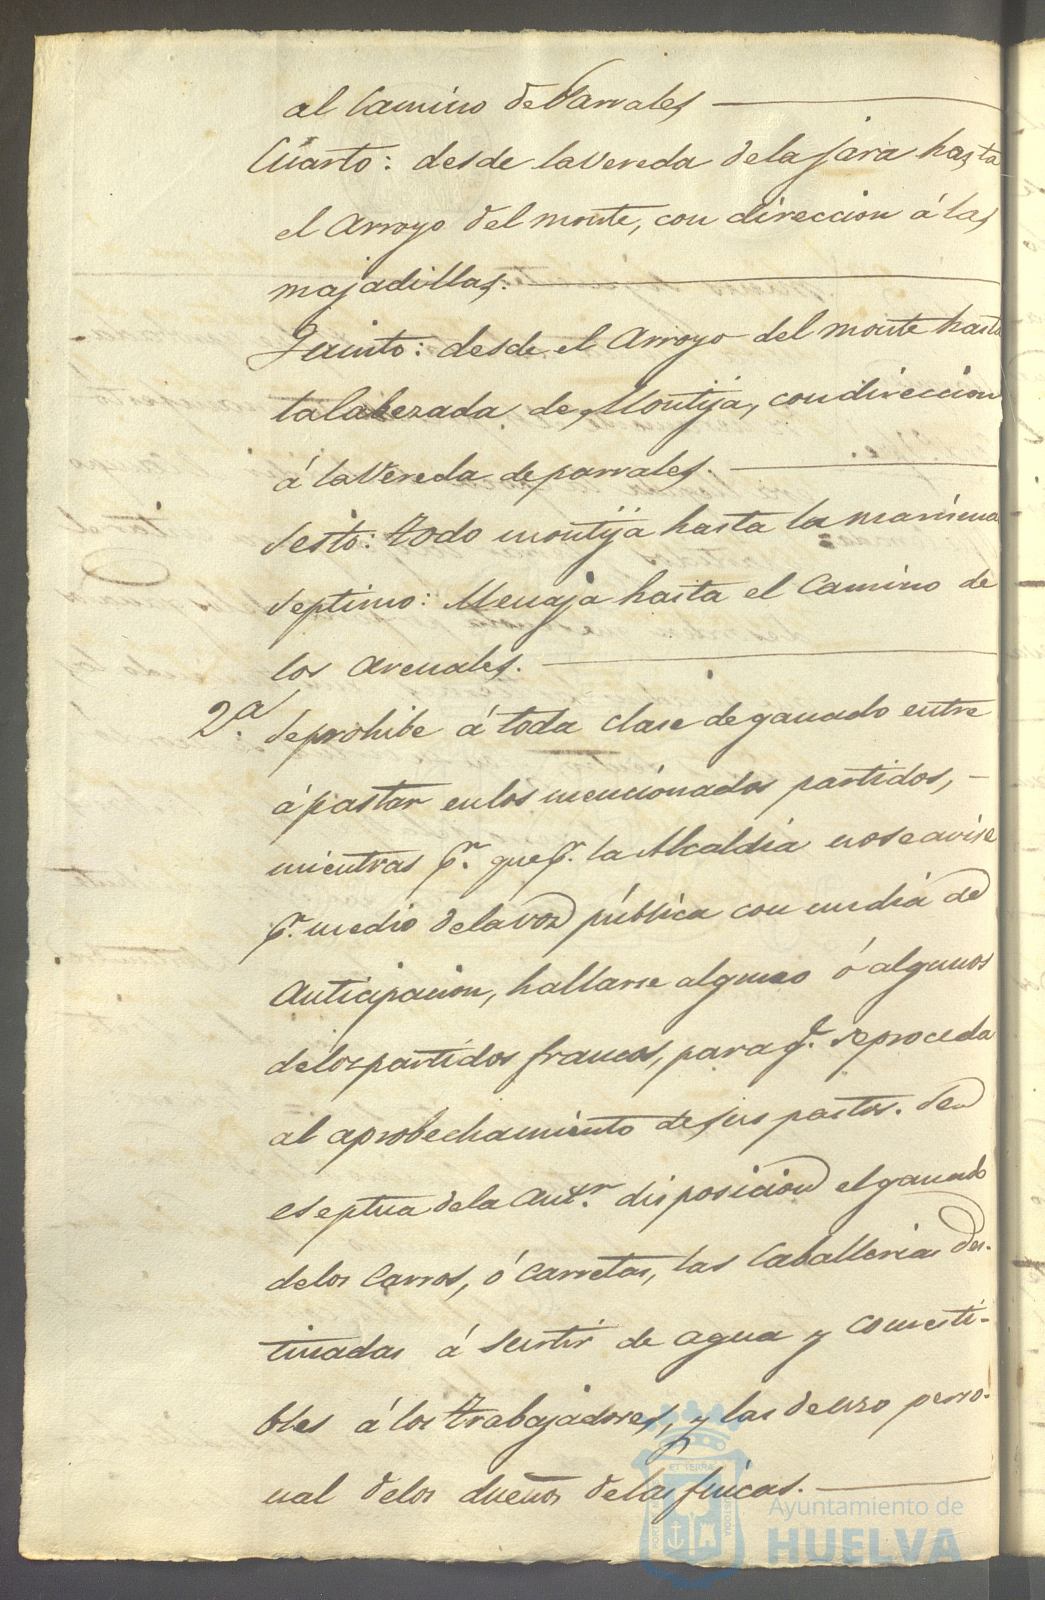 al Camino de Parrales
Cuarto: desde la Vereda de la jara hasta
el Arroyo del monte, con direccion á las
majadillas.
Quinto: desde el Arroyo del monte hasta
la Cabezada de Montija, con direccion
á la Vereda de parrales.
Sesto: todo montija hasta la marisma
Septimo: Menaja hasta el Camino de
los Arenales.
2.a Se prohibe á toda clase de ganado entre
á pastar en los mencionados partidos,
mientras pr. que pr. la Alcaldia no se avise
pr. medio de la voz pública con un dia de
Anticipacion, hallarse alguno ó algunos
de los partidos francos, para q.e se proceda
al aprobechamiento de sus pastos. Se
eseptua de la Antr. disposicion el ganado
de los Carros, ó Carretas, las Caballerias des-
tinadas á Surtir de agua y comesti-
bles á los trabajadores, y las de uso perso-
nal de los dueños de las fincas.
ET TERRÆ
Ayuntamiento de
HUELVA